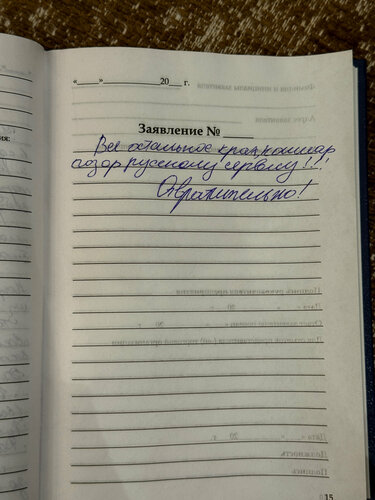 «____»______________20___ г.
Заявление № _____
Все остальное крах, кошмар
позор русскому сервису!!!
Отвратительно!
15